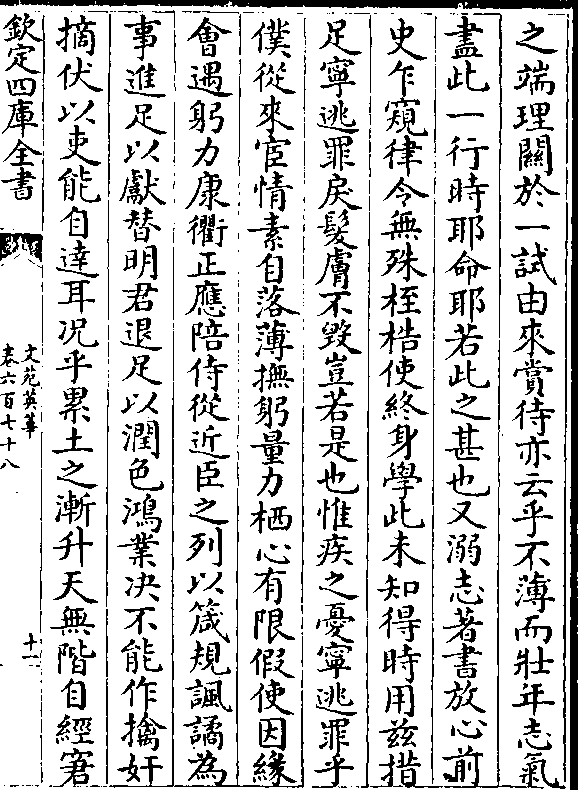 之端理闗於一試由來賞待亦云乎不薄而壯年志氣
盡此一行時耶命耶若此之甚也又溺志著書放心前
史乍窺律令無殊桎梏使終身學此未知得時用兹措
足寧逃罪戾髮膚不毀豈若是也惟疾之憂寧逃罪乎
僕從來宦情素自落薄撫躬量力栖心有限假使因緣
㑹遇躬力康衢正應陪侍從近臣之列以箴規諷譎為
事進足以獻替明君退足以潤色鴻業决不能作擒奸
摘伏以吏能自達耳况乎累土之漸升天無階自經窘
欽定四庫全書
文苑英華
卷六百七十八
十一